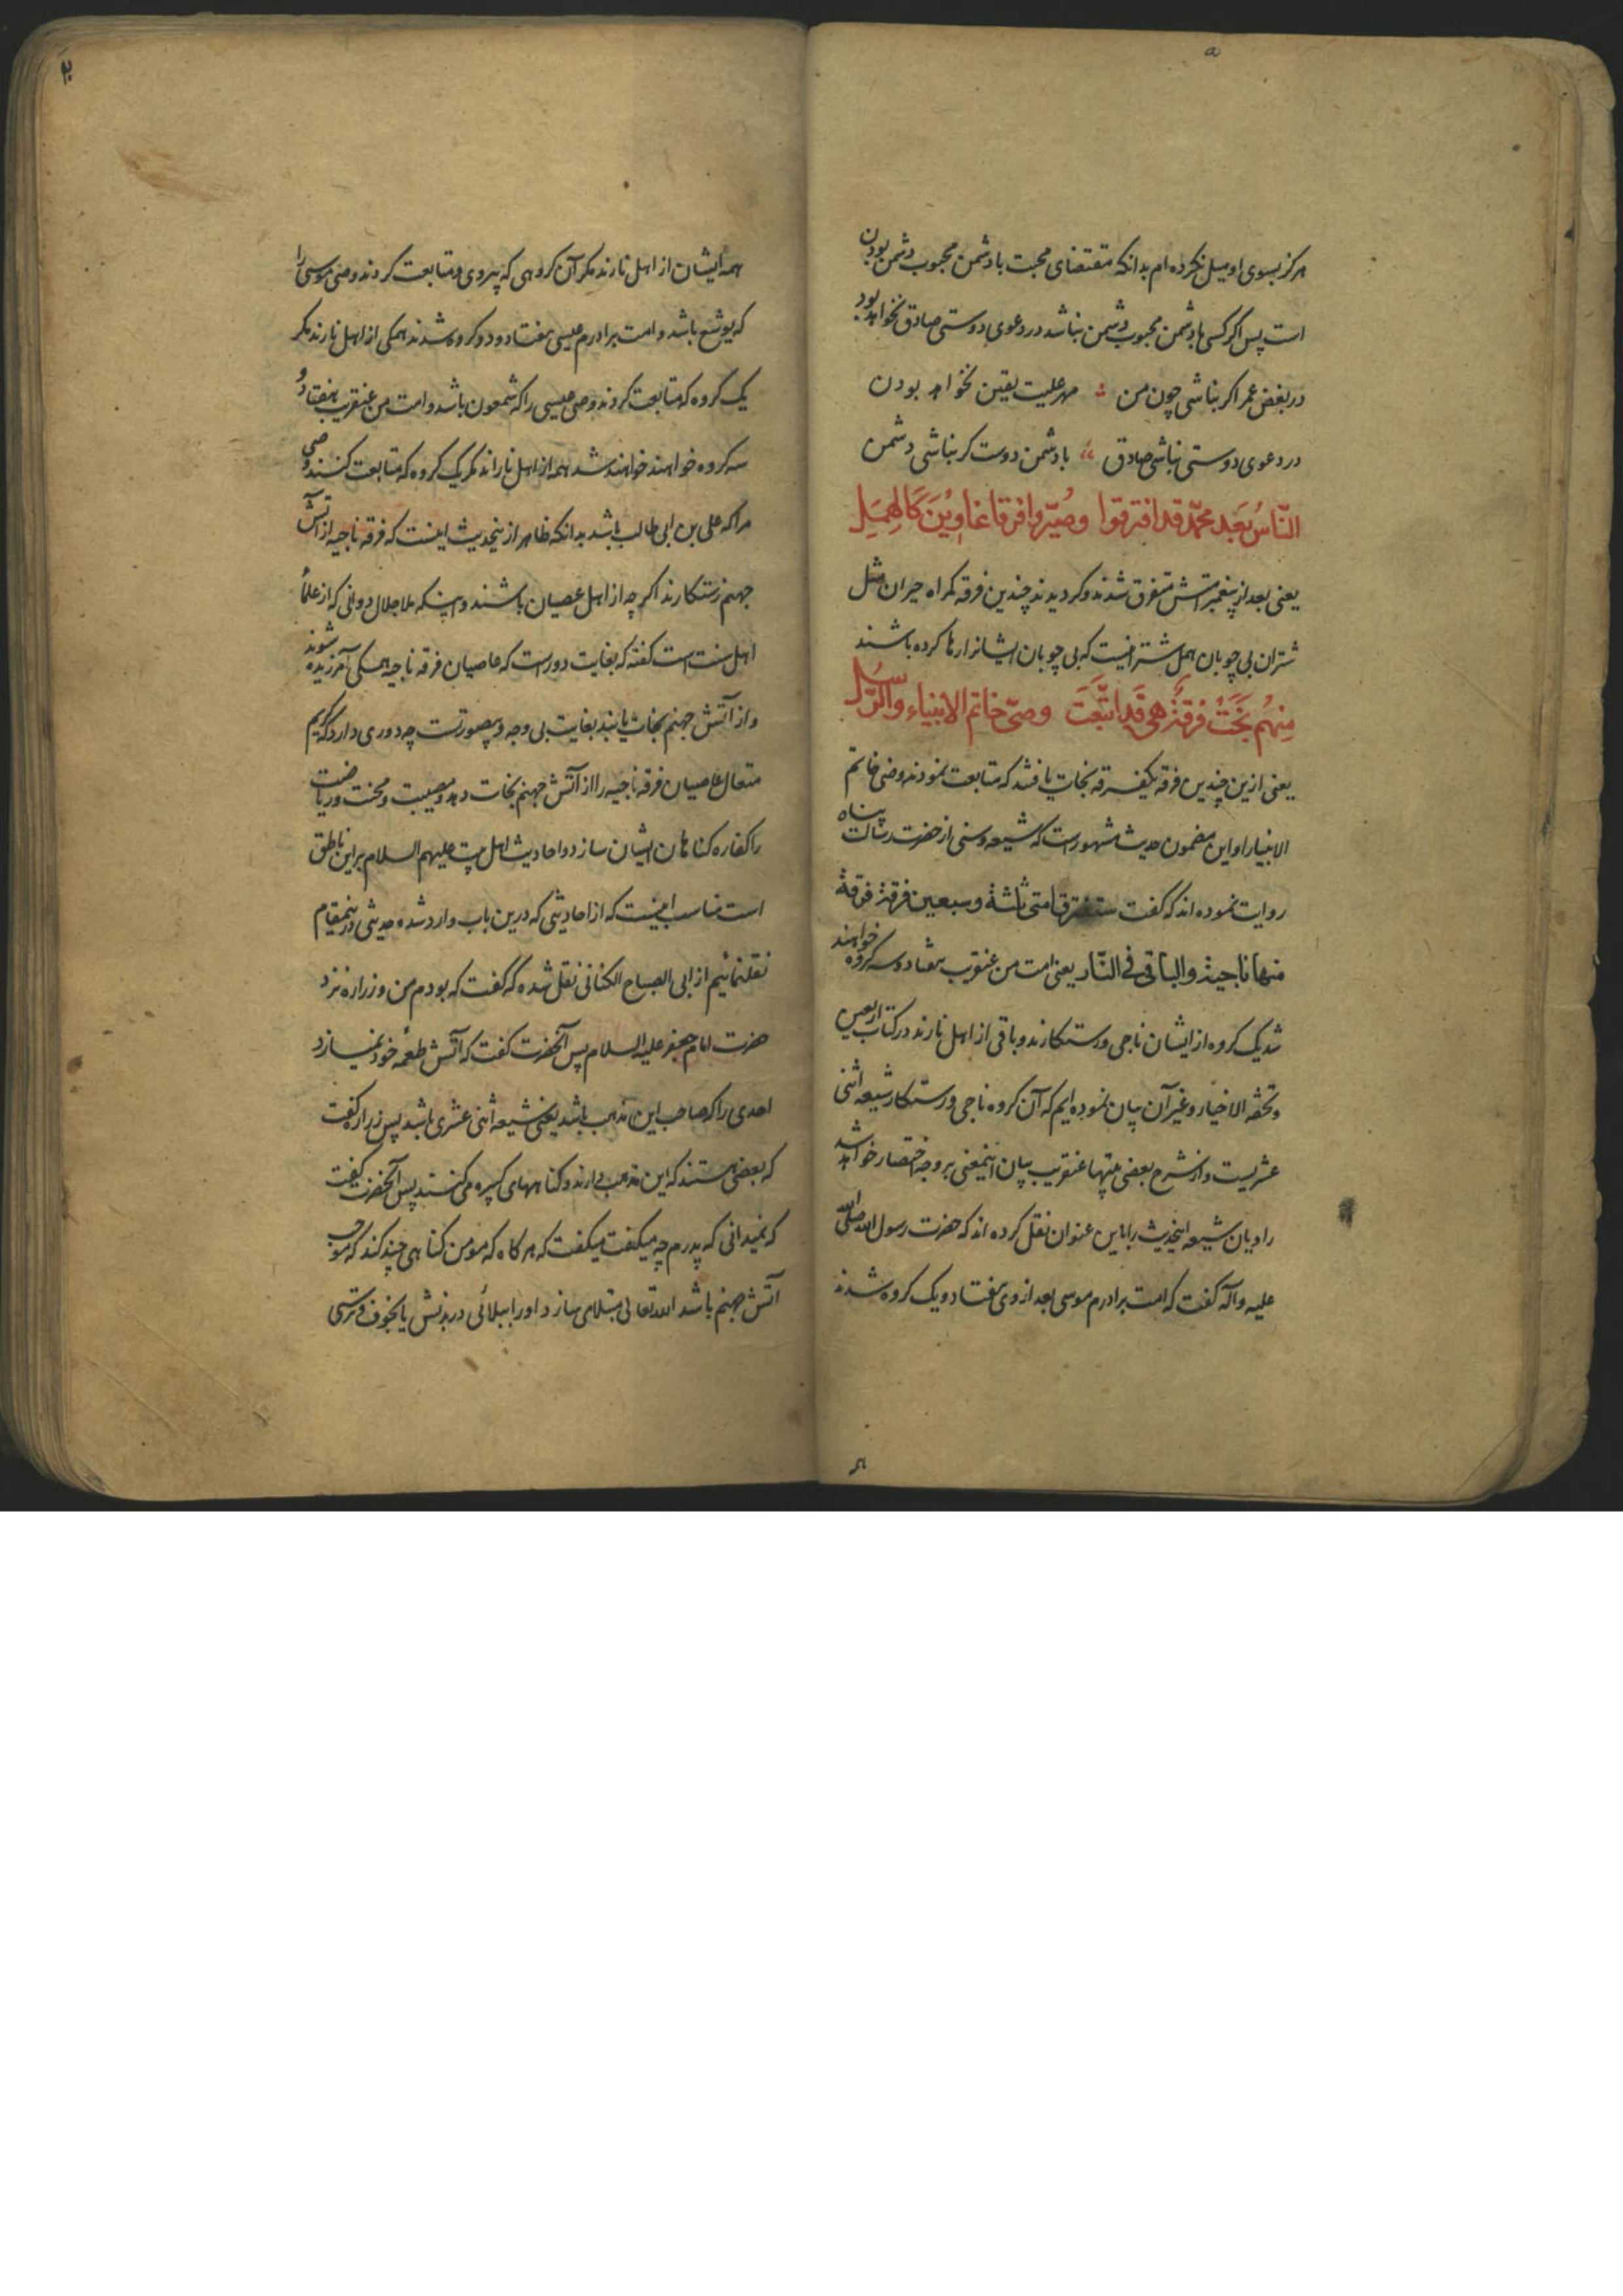 هرگز بسوی او میل نکرده ام بدانکه مقتضای محبت با دشمن محبوب دشمن بودن
است پس اگر کسی با دشمن محبوب دشمن نباشد در دعوی دوستی صادق نخواهد بود
در بغض عمر اگر نباشی چون من مهر علیت یقین نخواهد بودن
در دعوی دوستی نباشی صادق با دشمن دوست گر نباشی دشمن
النّاسُ بَعد محمّد قد افترقوا وصُیّروا فرقا غاوِیْنَ کَالهَمَلِ
یعنی بعد از پیغمبر امتش متفرق شدند و کردیدند چندین فرقه کمراه حیران مثل
شتران بی چوبان همل شترانیست که بی چوبان ایشانرا رها کرده باشند
مِنهُم نَجَتْ فُرقَةٌ هی قَد اتَّبَعَت وصیّ خاتم الانبیاء والرُّسُل
یعنی ازین چندین فرقه یکفرقه نجات یافتند که متابعت نمودند وصی خاتم
الانبیا را و این مضمون حدیث مشهورست که شیعه و سنی از حضرت رسالت پناه
روایت نموده اند که گفت ستفترق امتی ثلثة وسبعین فرقة فرقة
منها ناجیة والباقی فی النّار یعنی امت من عنقریب هفتاد و سه کروه خواهند
شد یک کروه از ایشان ناجی و رستکارند و باقی از اهل نارند در کتاب اربعین
و تحفه الاخیار و غیر آن بیان نموده ایم که آن کروه ناجی و رستکار شیعه اثنی
عشریست و از شرح بعضی بیتها عنقریب بیان اینمعنی بر وجه اختصار خواهد شد
راویان شیعه اینحدیث را باین عنوان نقل کرده اند که حضرت رسول الله صلی الله
علیه و آله گفت که امت برادرم موسی بعد از وی هفتاد و یک کروه شدند
همه ایشان از اهل نارند مکر آن کروهی که پیروی و متابعت کردند وصی موسی را
که یوشع باشد و امت برادرم عیسی هفتاد و دو کروه شدند همکی از اهل نارند مکر
یک کروه که متابعت کردند وصی عیسی را که شمعون باشد و امت من عنقریب هفتاد و
سه کروه خواهند خواهند شد همه از اهل ناراند مکر یک کروه که متابعت کنند وصی
مرا که علی بن ابی طالب باشد بدانکه ظاهر ازینحدیث اینست که فرقه ناجیه از آتش
جهنم رستکارند اگر چه از اهل عصیان باشند و اینکه ملا جلال دوانی که از علمأ
اهل سنت است گفته که بغایت دورست که عاصیان فرقه ناجیه همکی آمرزیده شوند
و از آتش جهنم نجات یابند بغایت بی وجه و بیصورتست چه دوری دارد که کریم
متعال عاصیان فرقه ناجیه را از آتش جهنم نجات دهد و مصیبت و محنت و ریاضت
را کفاره کناهان ایشان سازد و احادیث اهل بیت علیهم السلام بر این ناطق
است مناسب اینست که از احادیثی که درین باب وارد شده حدیثی درینمقام
نقلنمائیم از ابی الصباح الکنانی نقل شده که گفت که بودم من و زراره نزد
حضرت امام جعفر علیه السلام پس آنحضرت گفت که آتش طعمه خود نمیسازد
احدی را که صاحب این مذهب باشد یعنی شیعه اثنی عشری باشد پس زراره گفت
که بعضی هستند که این مذهب دارند و کناههای کبیره می کنند پس آنحضرت گفت
که نمیدانی که پدرم چه میکفت میکفت که هر کاه که مومن کناهی چند کند که موجب
آتش جهنم باشد الله تعالی مبتلا می سازد او را ببلائی در بدنش یا بخوف و ترسی